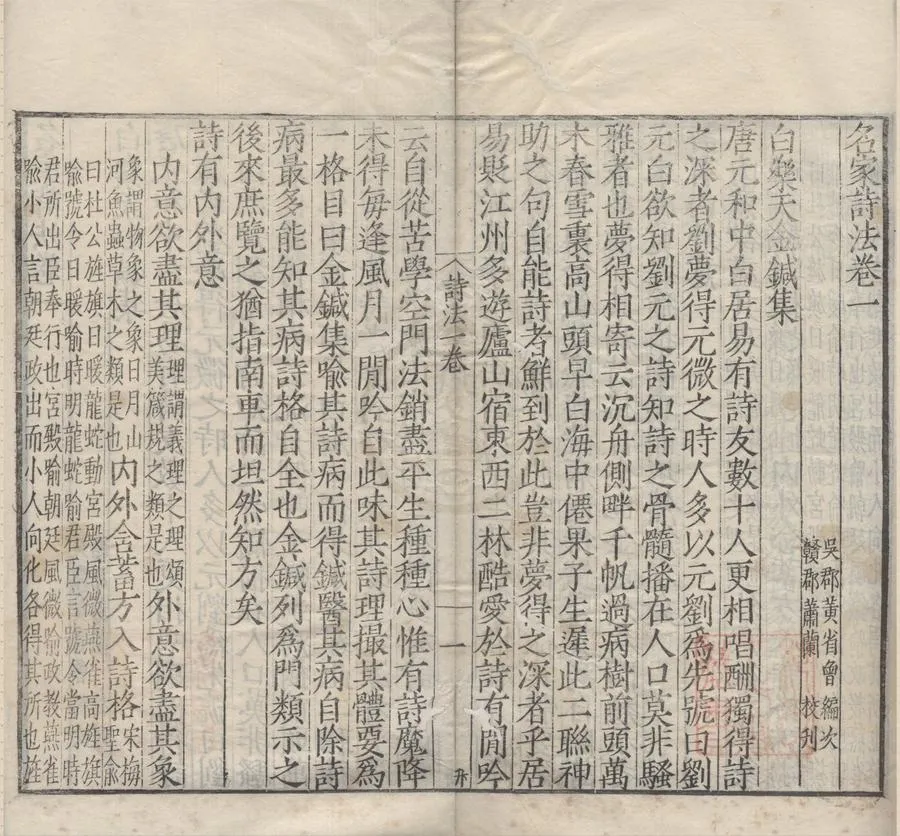 名家詩法卷一
吳郡黃省曾編次
贛郡蕭蘭校刋
白樂天金鍼集
唐元和中白居易有詩友數十人更相唱酬獨得詩
之深者劉夢得元微之時人多以元劉爲先號曰劉
元白欲知劉元之詩知詩之骨髓播在人口莫非騷
雅者也夢得相寄云沉舟側畔千帆過病樹前頭萬
木春雪裏高山頭早白海中僊果子生遲此二聯神
助之句自能詩者鮮到於此豈非夢得之深者乎居
易貶江州多遊廬山宿東西二林酷愛於詩有閒吟
詩法一卷
一
云自從苦學空門法銷盡平生種種心惟有詩魔降
未得每逢風月一閒吟自此味其詩理撮其體要爲
一格目曰金鍼集喻其詩病而得鍼醫其病自除詩
病最多能知其病詩格自全也金鍼列爲門類示之
後來庶覽之猶指南車而坦然知方矣
詩有内外意
内意欲盡其理理謂義理之理頌美箴規之類是也外意欲盡其象
象謂物象之象日月山河魚蟲草木之類是也内外含蓄方入詩格聖俞宋梅
曰杜公旌旗日暖龍蛇動宮殿風微燕雀高旌旗
喻號令日暖喻時明龍蛇喻君臣言號令當明時
君所出臣奉行也宮殿喻朝廷風微喻政教燕雀
喻小人言朝廷政出而小人向化各得其所也旌